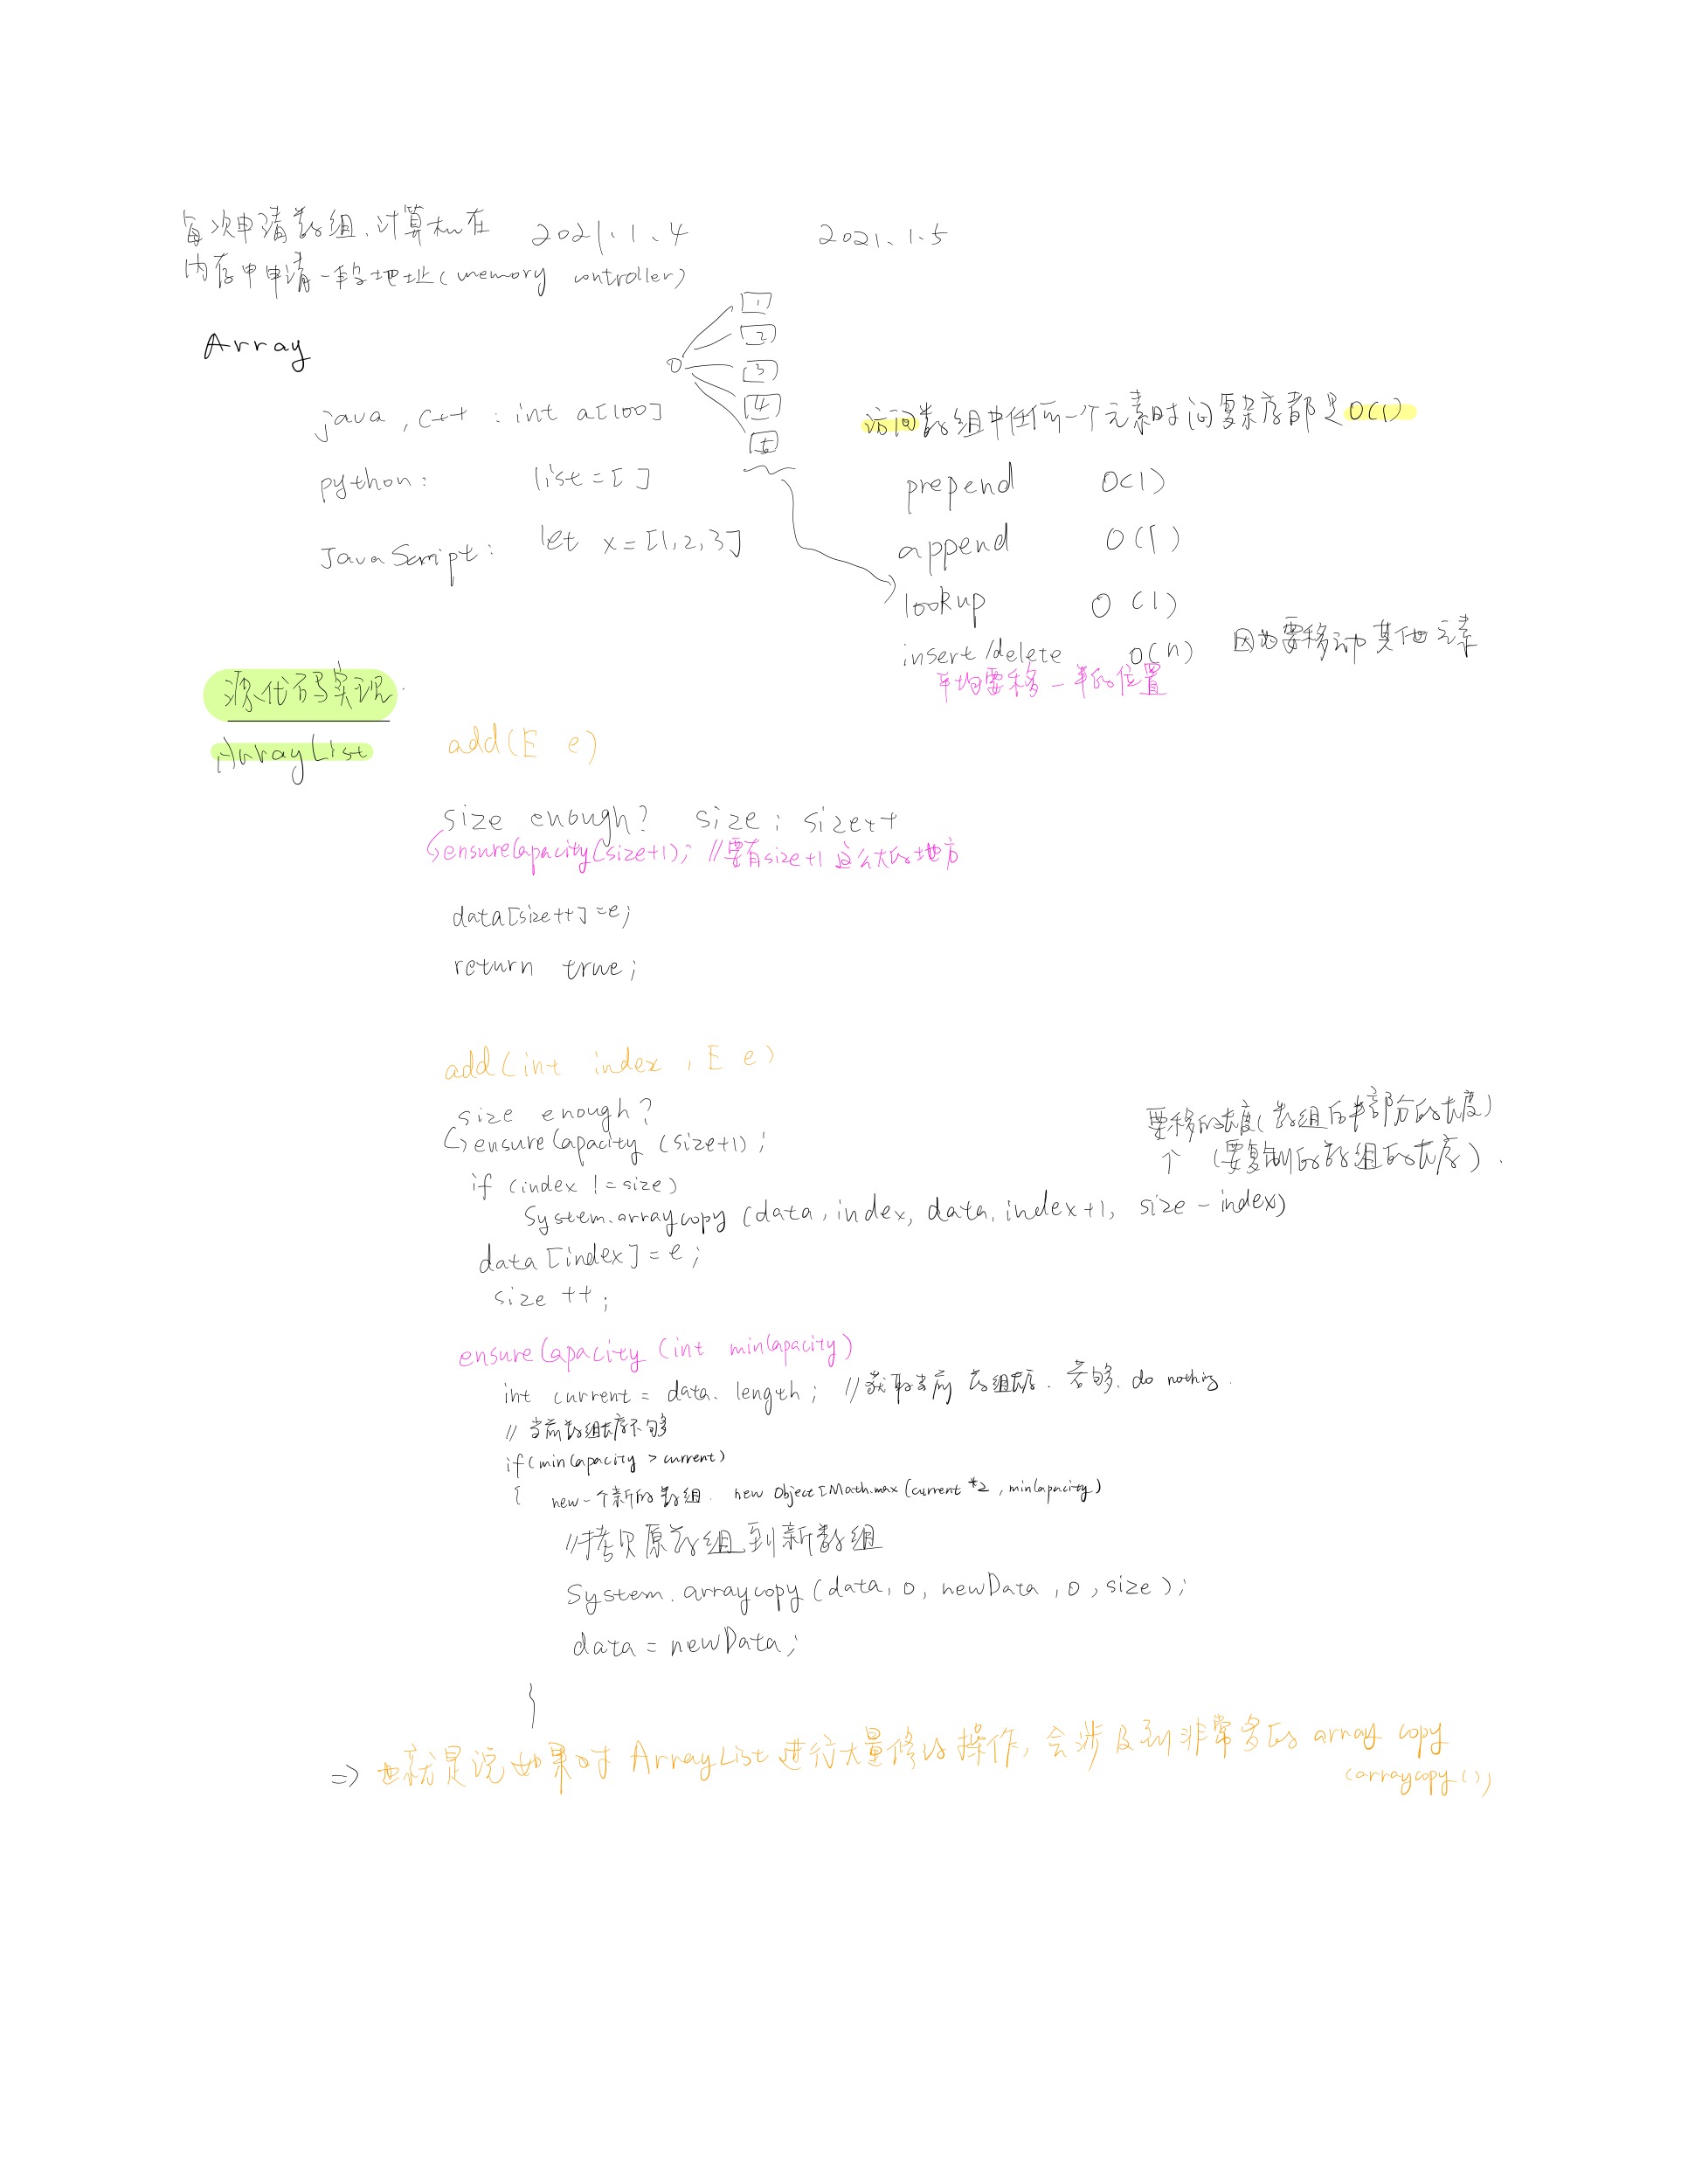 每次申请数组,计算机在
内存中申请一段地址(memory controller)
2021.1.4
2021.1.5
Array
java, c++ : int a[100]
python: list=[ ]
JavaScript: let x=[1,2,3]
0
1
2
3
4
5
访问数组中任何一个元素时间复杂度都是O(1)
prepend O(1)
append O(1)
lookup O(1)
insert/delete O(n) 因为要移动其他元素
平均要移一半的位置
源代码实现
ArrayList
add(E e)
size enough? size ; size++
ensureCapacity(size+1); //要有size+1这么大的地方
data[size++]=e;
return true;
add(int index, E e)
size enough?
ensureCapacity (size+1);
要移的长度(数组后半部分的长度)
个 (要复制的数组的长度).
if (index != size)
System.arraycopy (data, index, data, index+1, size-index)
data[index]=e;
size ++;
ensureCapacity (int minCapacity)
int current = data.length; //获取当前数组长度. 若够, do nothing.
// 当前数组长度不够
if(minCapacity > current)
{ new一个新的数组. new Object[Math.max(current *2, minCapacity)
//拷贝原数组到新数组
System.arraycopy(data, 0, newData, 0, size);
data = newData;
}
=> 也就是说如果对ArrayList进行大量修改操作,会涉及到非常多的array copy
(arraycopy())